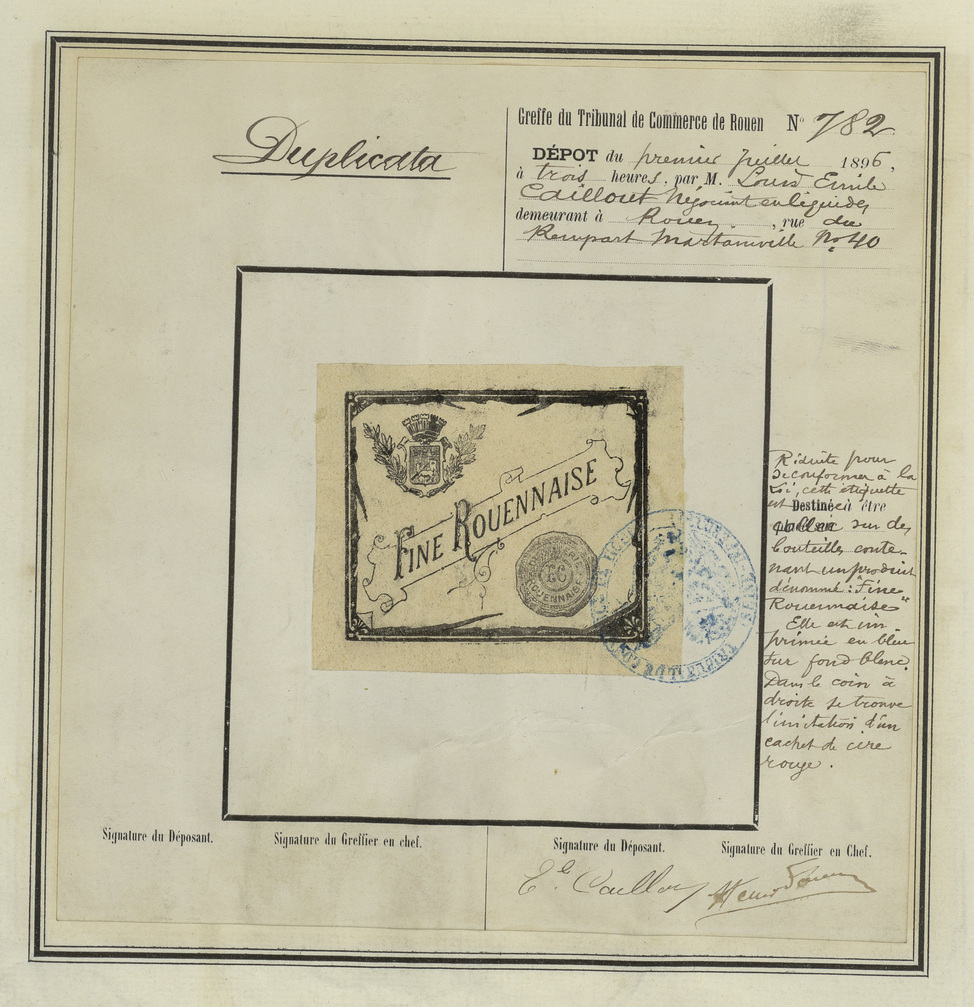 Duplicata
Greffe du Tribunal de Commerce de Rouen N° 782
DÉPOT du premier juillet 1896,
à trois heures, par M. Louis Emile
Caillout Négociant en liquides
demeurant à Rouen, rue du
Rempart Martainville No 40
FINE ROUENNAISE
ROUENNAISE
Réduite pour
se conformer à la
Loi, cette étiquette
est Destinée à être
sur des
bouteilles conte-
nant un produit
dénommé: "Fine
Rouennaise"
Elle est im
primée en bleu
sur fond blanc.
Dans le coin à
droite se trouve
l'imitation d'un
cachet de cire
rouge.
Signature du Déposant.
Signature du Greffier en chef.
Signature du Déposant.
Signature du Greffier en Chef.